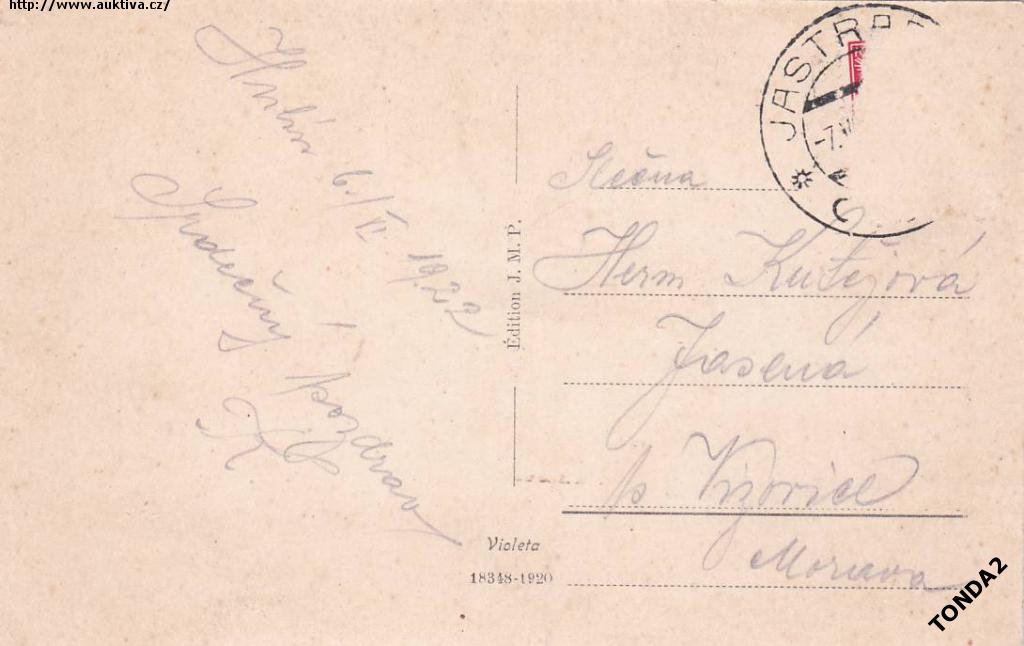 http://www.auktiva.cz/
6./VI. 1922
Srdečný
pozdrav
Édition J. M. P.
Violeta
18348-1920
JASTRA
-7.VI
Slečna
Herm Kutějová
Jasená
p Vizovice
Morava
TONDA2